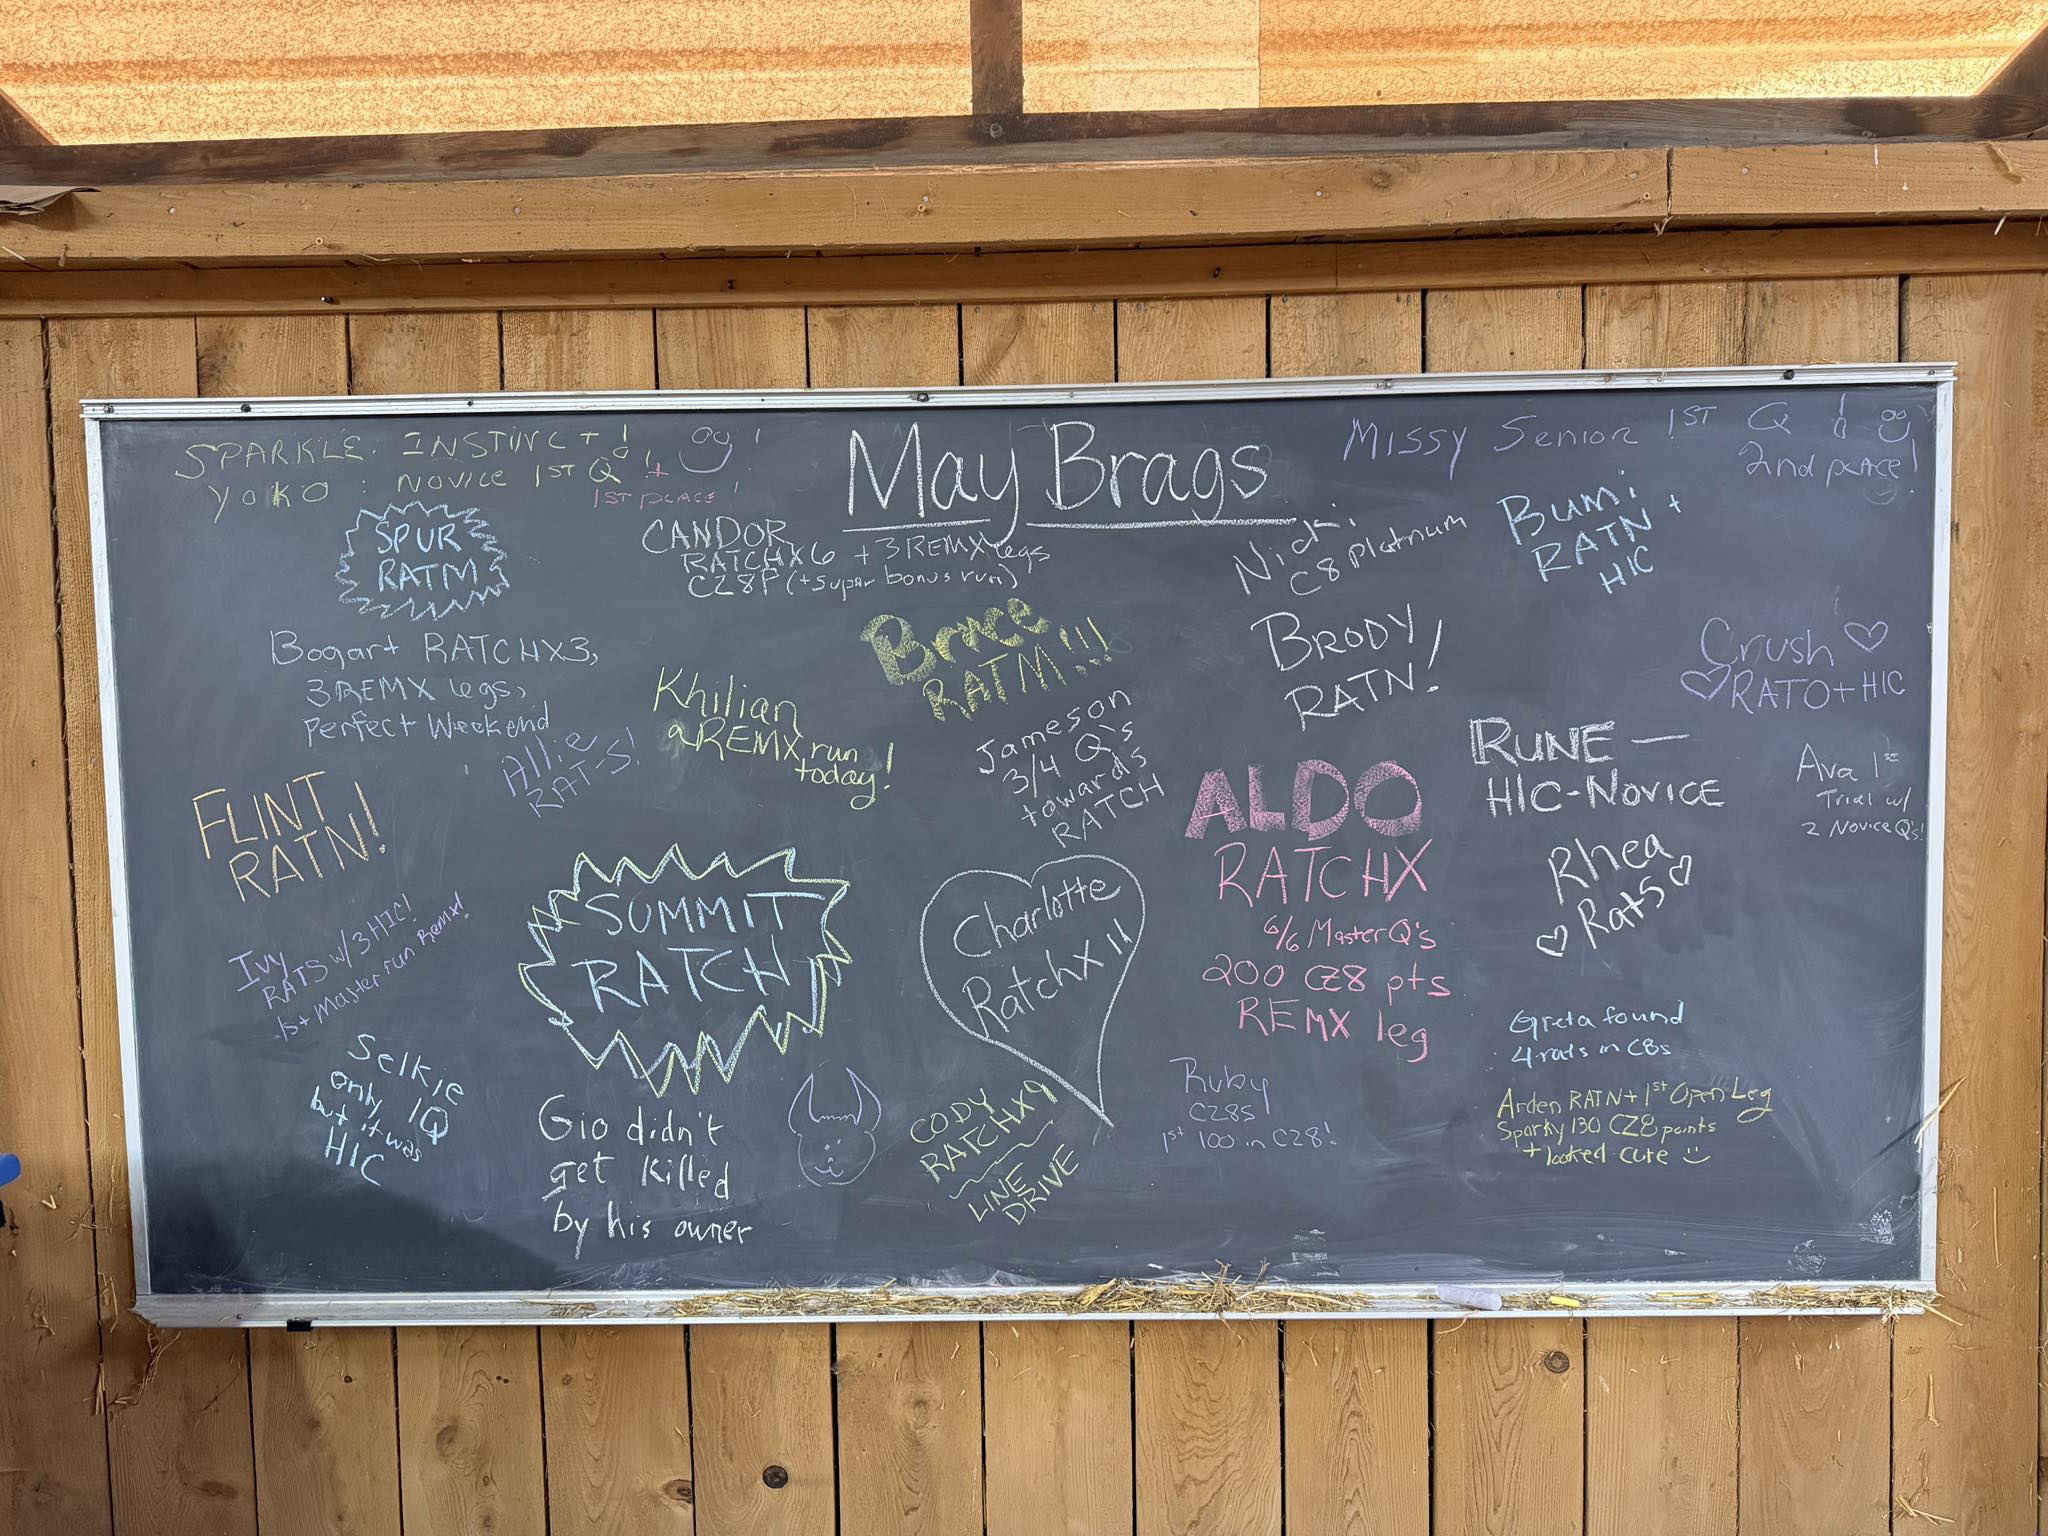 May Brags
SPARKLE. INSTINCT!
YOKO: NOVICE 1ST Q! +
1ST PLACE!
MISSY Senior 1ST Q!
2nd place!
SPUR
RATM
CANDOR
RATCHX6 + 3 REMX legs
CZ8P (+ super bonus run)
Nicki
C8 Platinum
Bumi
RATN +
HIC
Bogart RATCHX3,
3 REMX legs,
Perfect Weekend
Bruce
RATM!!!
BRODY
RATN!
Crush
RATO + HIC
Khilian
a REMX run
today!
Allie
RAT-S!
Jameson
3/4 Q's
towards
RATCH
RUNE —
HIC-NOVICE
Ava 1st
Trial w/
2 Novice Q's!
FLINT
RATN!
ALDO
RATCHX
6/6 Master Q's
200 CZ8 pts
REMX leg
Rhea
Rats
Ivy
RATS w/ 3 HIC!
1st Master run Remx!
SUMMIT
RATCH
Charlotte
RatchX 11
Greta found
4 rats in C8s
Selkie
only 1Q
but it was
HIC
Gio didn't
get killed
by his owner
CODY
RATCHX9
LINE
DRIVE
Ruby
CZ8S
1st 100 in CZ8!
Arden RATN + 1st Open Leg
Sparky 130 CZ8 points
+ looked cute